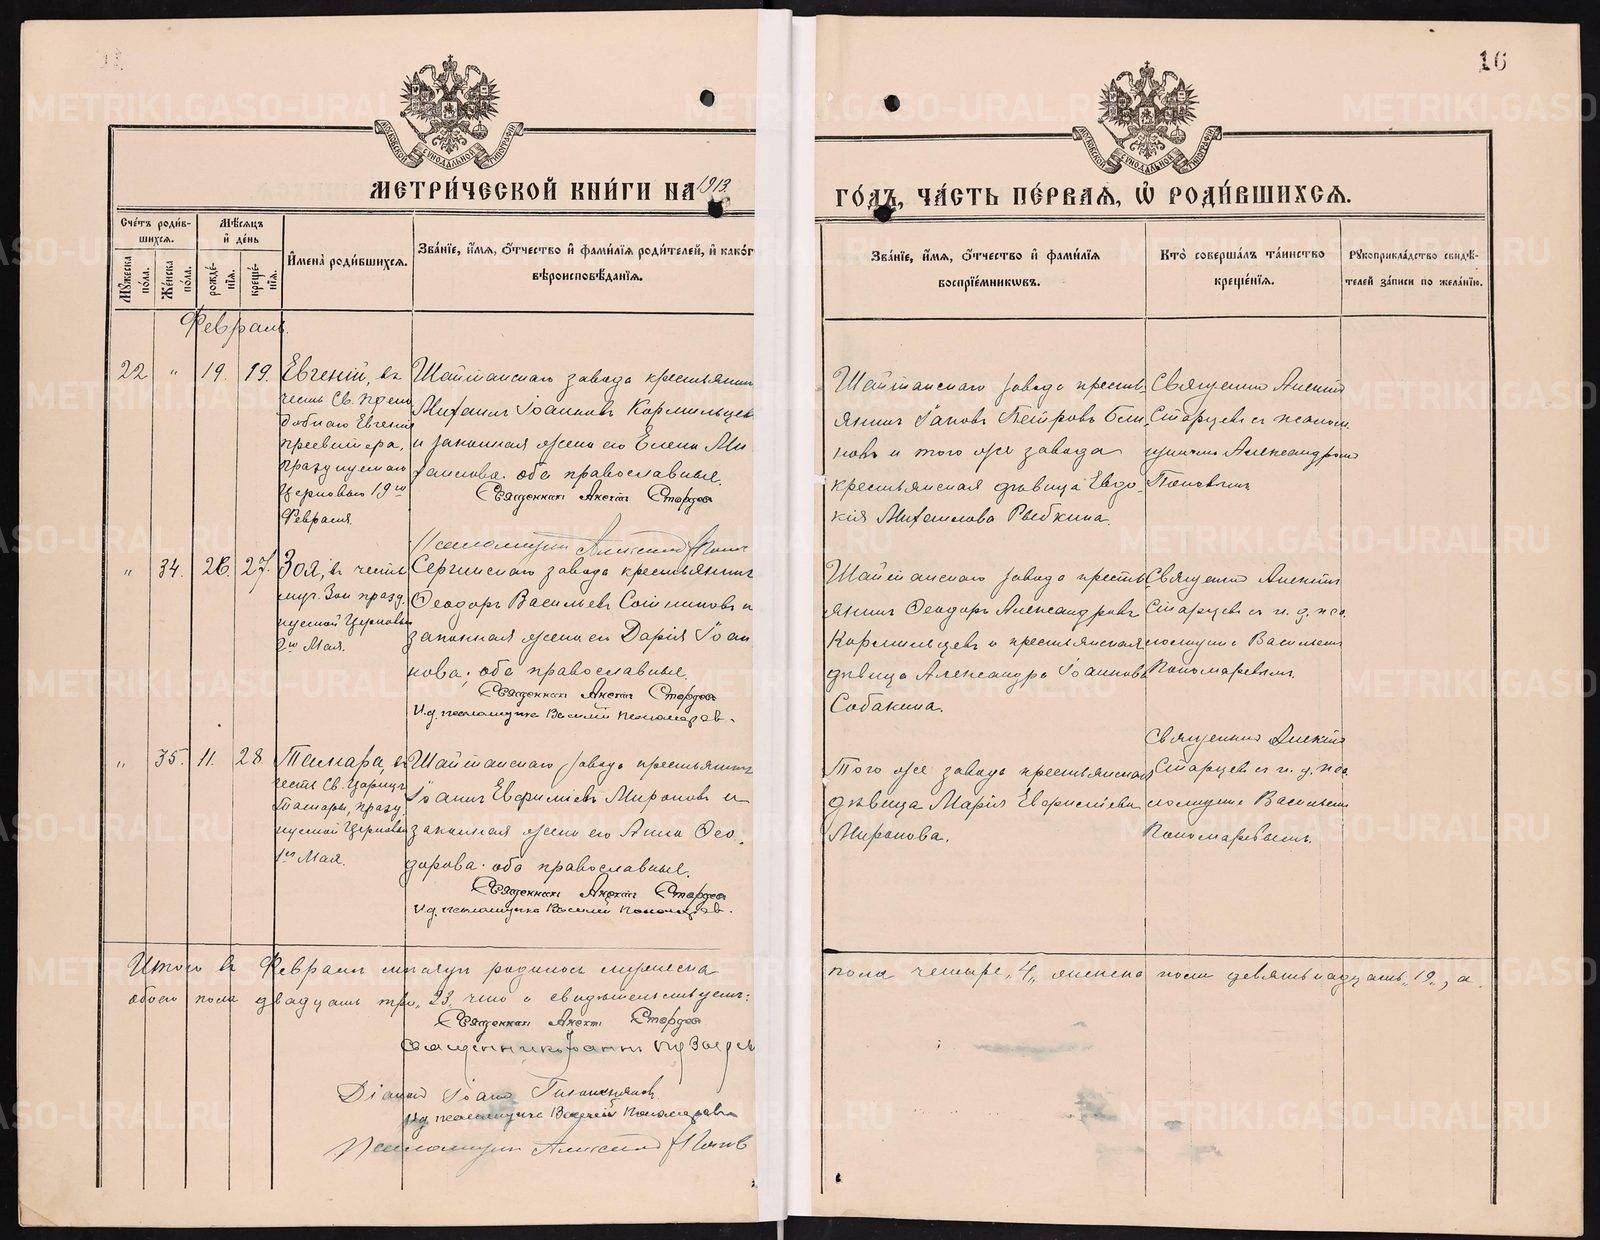 16
МЕТРИ́ЧЕСКОЙ КНИ́ГИ НА 1913.
ГО́ДЪ, ЧА́СТЬ ПЕ́РВАѦ, Ѡ҆ РОДИ́ВШИХСѦ.
Сче́тъ роди́в-
шихсѧ.
Мꙋ́жеска по́ла.
Же́нска по́ла.
Мѣ́сѧцъ
и҆ де́нь
рожде́-
нїѧ.
креще́-
нїѧ.
И҆мена̀ роди́вшихсѧ.
Зва́нїе, и҆́мѧ, ѻ҆́тчество и҆ фами́лїѧ роди́телей, и҆ како́г
вѣроисповѣ́данїѧ.
Зва́нїе, и҆́мѧ, ѻ҆́тчество и҆ фами́лїѧ
воспрїе́мникѡвъ.
Кто̀ соверша́лъ та́инство
креще́нїѧ.
Рꙋкоприкла́дство свидѣ́-
телей за́писи по жела́нїю.
Февраль.
22 " 19. 19.
Евгеній, въ
честь Св. Препо
добнаго Евгенія
пресвитера,
празднуемаго
Церковью 19го
Февраля.
Шайтанскаго завода крестьянинъ
Михаилъ Іоанновъ Кормильцев
и законная жена его Елена Ми
хаилова. оба православные.
Священникъ Алексій Старцев
Псаломщикъ Александръ Попов
Шайтанскаго завода кресть-
янинъ Іаковъ Петровъ Бли
новъ и того же завода
крестьянская дѣвица Евдо-
кія Михаилова Рыбкина.
Священникъ Алексій
Старцевъ съ псалом-
щикомъ Александромъ
Поповымъ
" 34. 26. 27.
Зоя, въ честь
муч. Зои празд.
нуемой Церковью
2го Мая.
Сергинскаго завода крестьянинъ
Ѳеодоръ Васильевъ Сотниковъ и
законная жена его Дарія Іоан
нова; оба православные.
Священникъ Алексій Старцев
И.д. псаломщика Василій Пономарев.
Шайтанскаго завода кресть
янинъ Ѳеодоръ Александровъ
Кормильцевъ и крестьянская
дѣвица Александра Іоаннова
Собакина.
Священникъ Алексій
Старцевъ съ и. д. пса
ломщика Васильемъ
Пономаревымъ.
" 35. 11. 28
Тамара, въ
честь Св. Царицы
Тамары, празд
нуемой Церковью
1го Мая.
Шайтанскаго завода крестьянинъ
Іоаннъ Евфиміевъ Мироновъ и
законная жена его Анна Ѳео-
дорова. оба православные.
Священникъ Алексій Старцев
И.д. псаломщика Василій Пономарев.
Того же завода крестьянская
дѣвица Марія Евфиміева
Миронова.
Священникъ Алексій
Старцевъ съ и. д. пса
ломщика Васильемъ
Пономаревымъ.
Итого въ Февралѣ мѣсяцѣ родилось мужеска
пола четыре „4„ женска пола девятнадцать „19„, а
обоего пола двадцать три „23„ что и свидѣтельствуемъ:
Священникъ Алексій Старцев
Священникъ Іоаннъ
Діаконъ Іоаннъ
И.д. псаломщика Василій Пономарев
Псаломщикъ Александръ Попов
METRIKI.GASO-URAL.RU